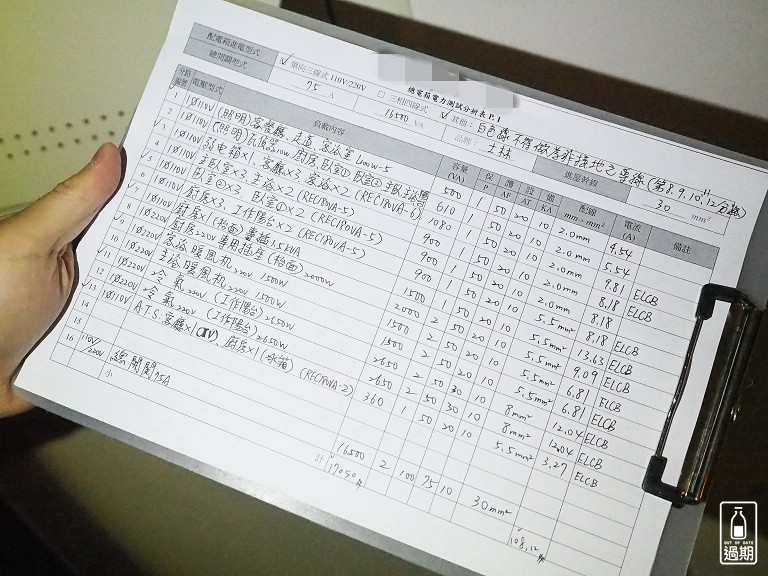 總電箱電力測試分析表 P.1
配電箱進電型式 ✓ 單向三線式 110V/220V □ 三相四線式 ✓ 其他：白色處不得做為非接地之導線(第8.9.10.11.12分路)
總開關型式 75 A 16500 VA 品別： 士林 進屋幹線 30 mm²
分路編號 電壓型式 負載內容 容量(VA) 保P 護AF 設AT 備KA 配線mm、mm² 電流(A) 備註
1 1Ø110V (照明)客餐廳、走道、客浴室 500 1 50 20 10 2.0mm 4.54
2 1Ø110V 610 1 50 20 10 2.0mm 5.54
3 1Ø110V 弱電箱×1、客廳×3、客浴×2 (RECIP0VA-6) 1080 1 50 20 10 2.0mm 9.81 ELCB
4 1Ø110V 主臥室×3、主浴×2 (RECIP0VA-5) 900 1 50 20 10 2.0mm 8.18 ELCB
5 1Ø110V 臥室②×3、臥室①×2 (RECIP0VA-5) 900 1 50 20 10 2.0mm 8.18
6 1Ø110V 廚房×3、工作陽台×2 (RECIP0VA-5) 900 1 50 20 10 5.5mm² 8.18 ELCB
7 1Ø110V 廚房×1(枱面)電鍋1.5KVA 1500 1 50 20 10 5.5mm² 13.63 ELCB
8 1Ø220V 廚房220V專用插座(枱面)2000W 2000 2 50 20 10 5.5mm² 9.09 ELCB
9 1Ø220V 客浴暖風机220V 1500W 1500 2 50 20 10 5.5mm² 6.81 ELCB
10 1Ø220V 主浴暖風机220V 1500W 1500 2 50 20 10 5.5mm² 6.81 ELCB
11 1Ø220V 冷氣220V(工作陽台)2650W 2650 2 50 30 10 8mm² 12.04 ELCB
12 1Ø220V 冷氣220V(工作陽台)2650W 2650 2 50 30 10 8mm² 12.04 ELCB
13 1Ø110V ATS:客廳×1(TV)、廚房×1(冰箱) (RECIP0VA-2) 360 1 50 20 10 5.5mm² 3.27 ELCB
14
15
16 110V/220V 總開關75A 16500 2 100 75 10 30mm²
小 計 17050 108.12
OUT OF DATE
過期